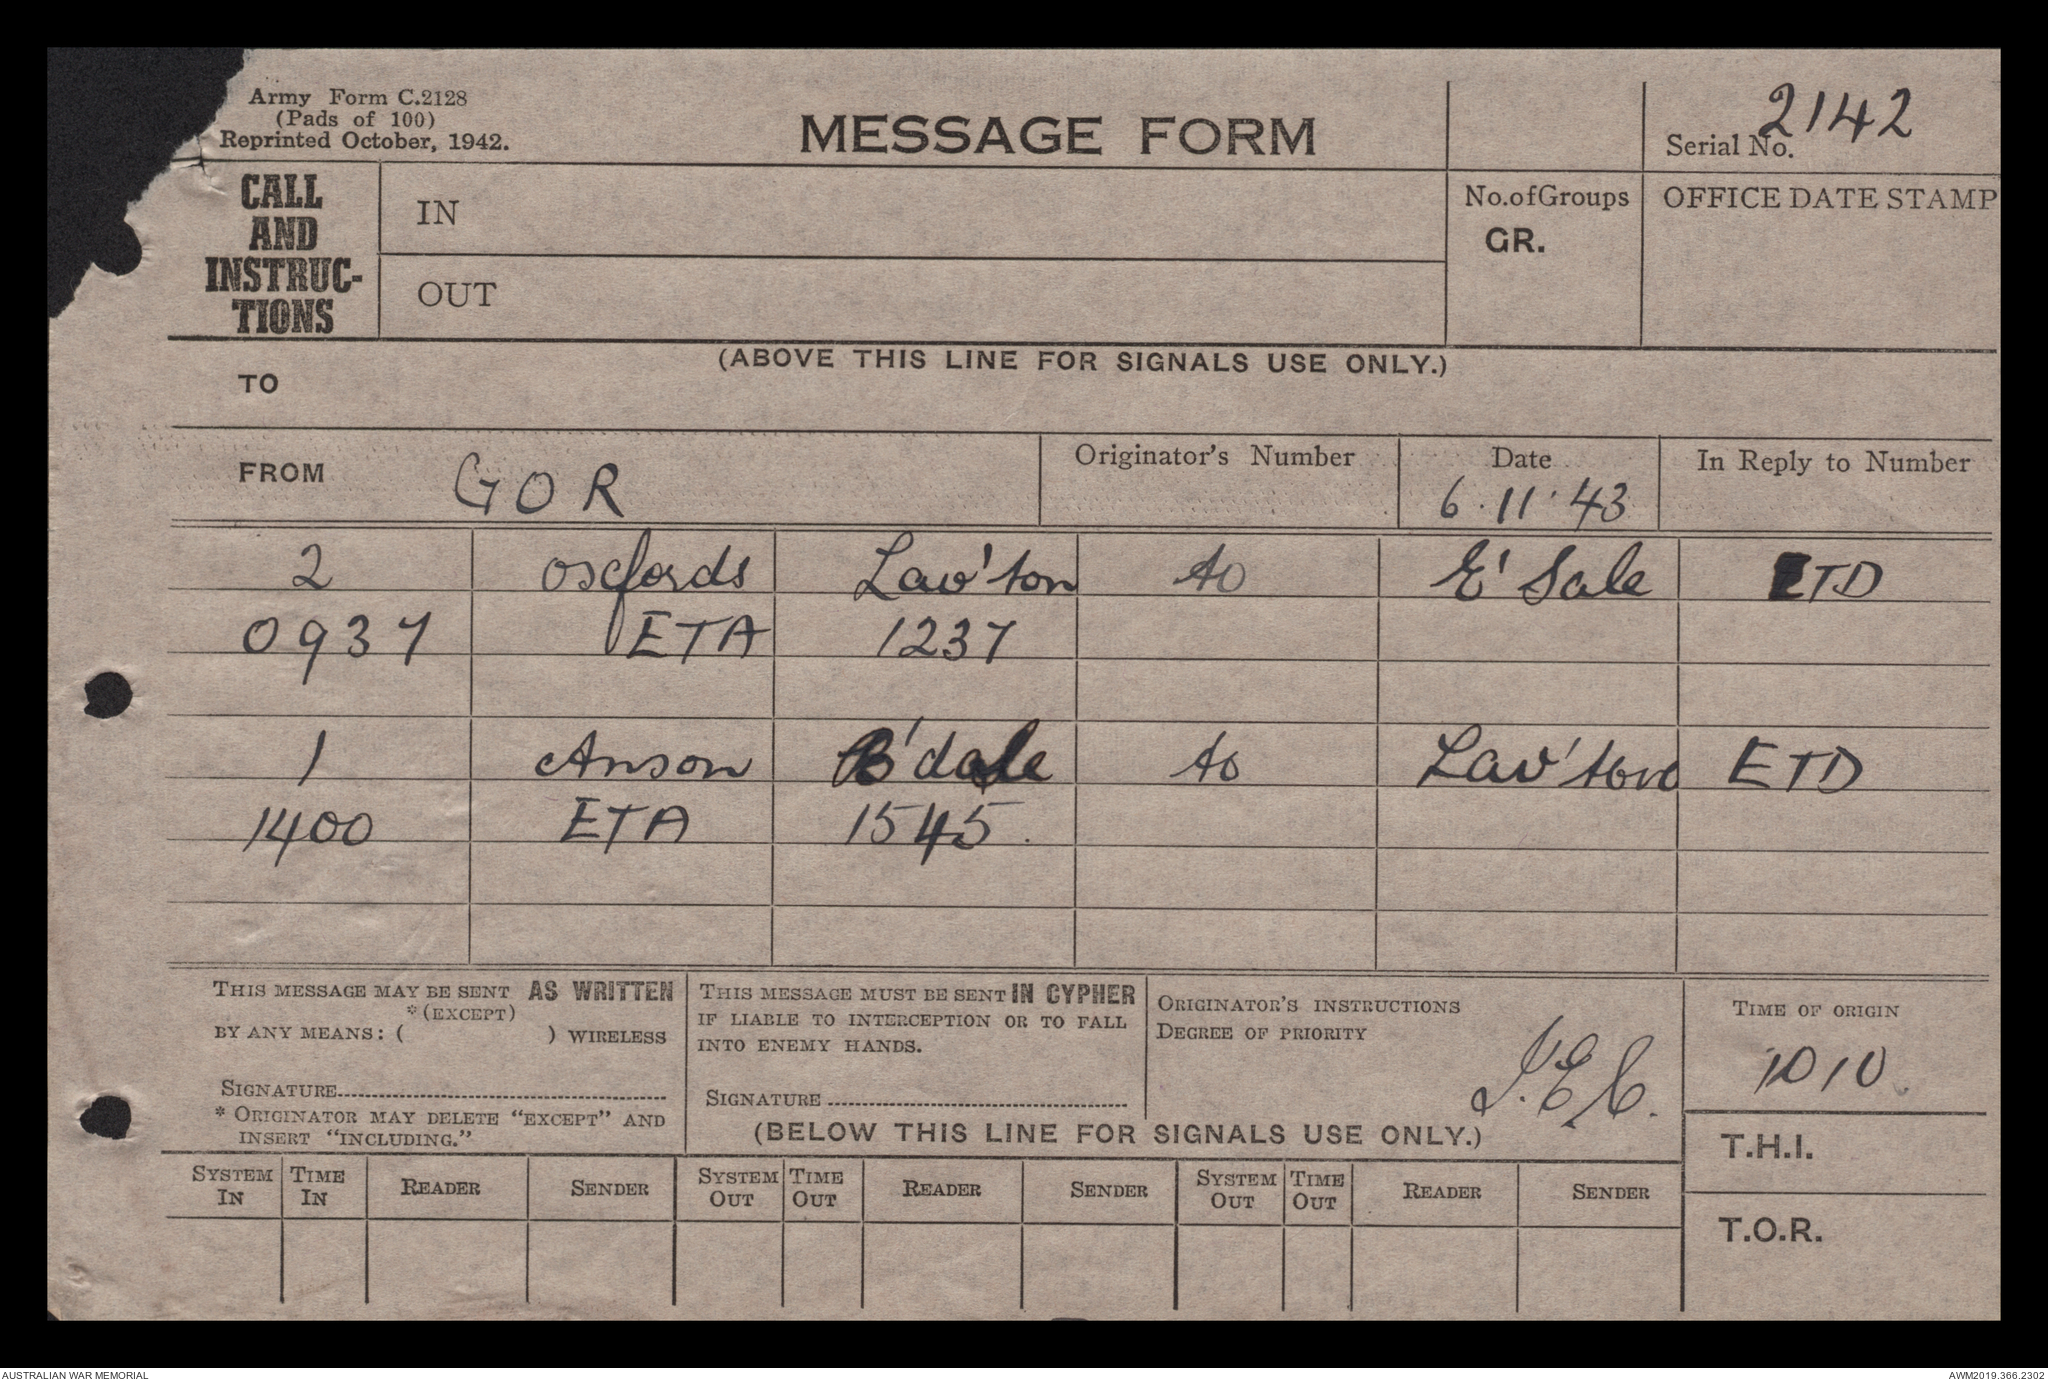 Army Form C.2128
(Pads of 100)
Reprinted October, 1942.
MESSAGE FORM
Serial No. 2142
CALL
AND
INSTRUC-
TIONS
IN
OUT
No. of Groups
GR.
OFFICE DATE STAMP
(ABOVE THIS LINE FOR SIGNALS USE ONLY.)
TO
FROM GOR
Originator's Number
Date
6.11.43
In Reply to Number
2 Oxfords Lav'ton to E'Sale ETD
0937 ETA 1237
1 Anson B'dale to Lav'ton ETD
1400 ETA 1545.
THIS MESSAGE MAY BE SENT AS WRITTEN
*(EXCEPT)
BY ANY MEANS: ( ) WIRELESS
SIGNATURE
* ORIGINATOR MAY DELETE "EXCEPT" AND
INSERT "INCLUDING."
THIS MESSAGE MUST BE SENT IN CYPHER
IF LIABLE TO INTERCEPTION OR TO FALL
INTO ENEMY HANDS.
SIGNATURE
ORIGINATOR'S INSTRUCTIONS
DEGREE OF PRIORITY
TIME OF ORIGIN
1010
(BELOW THIS LINE FOR SIGNALS USE ONLY.)
T.H.I.
T.O.R.
SYSTEM IN TIME IN READER SENDER SYSTEM OUT TIME OUT READER SENDER SYSTEM OUT TIME OUT READER SENDER
AUSTRALIAN WAR MEMORIAL
AWM2019.366.2302